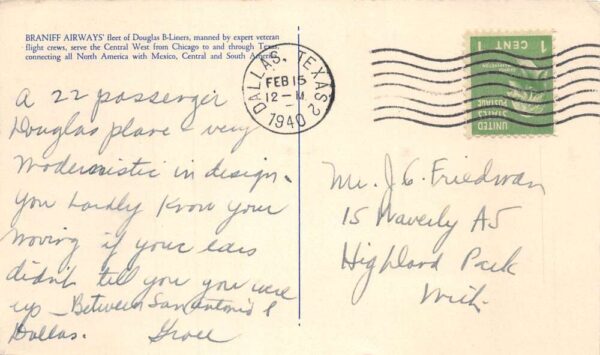 BRANIFF AIRWAYS' fleet of Douglas B-Liners, manned by expert veteran
flight crews, serve the Central West from Chicago to and through Texas,
connecting all North America with Mexico, Central and South America.
DALLAS, TEXAS 2
FEB 15
12-M
1940
1 CENT 1
UNITED
STATES
POSTAGE
A 22 passenger
Douglas plane - very
modernistic in design.
You hardly know your
moving if your ears
didn't tell you you were
up - Between San Antonio &
Dallas.
Mr. J. G. Friedman
15 Waverly
Highland Park
Mich.